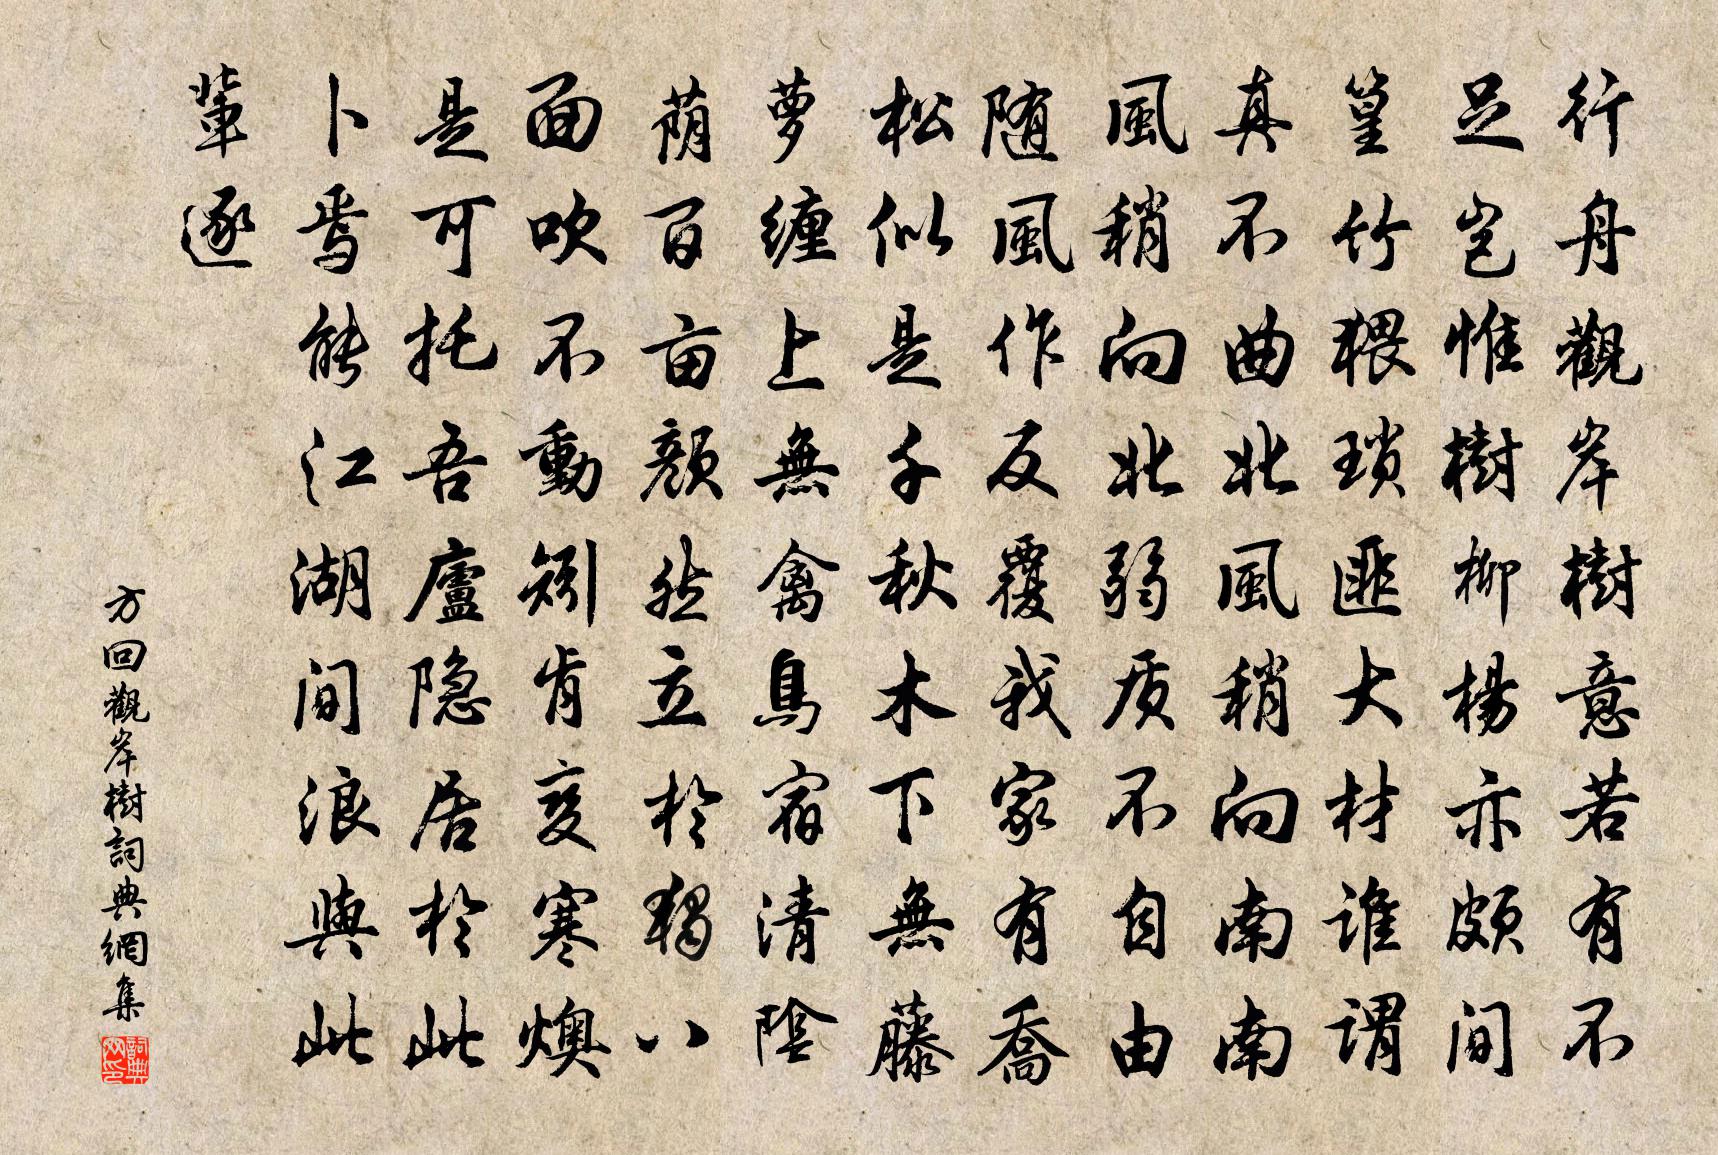 行舟觀岸樹意若有不
足岂惟樹柳楊亦頗间
篁竹猥瑣匪大材谁謂
真不曲北風稍向南南
風稍向北弱质不自由
随風作反覆我家有喬
松似是千秋木下無藤
萝缠上無禽鳥宿清陰
荫百亩颜然立於独八
面吹不動矧肯变寒燠
是可托吾廬隐居於此
卜焉能江湖间浪與此
輩逐
方回觀岸樹詞典網集
詞典网印